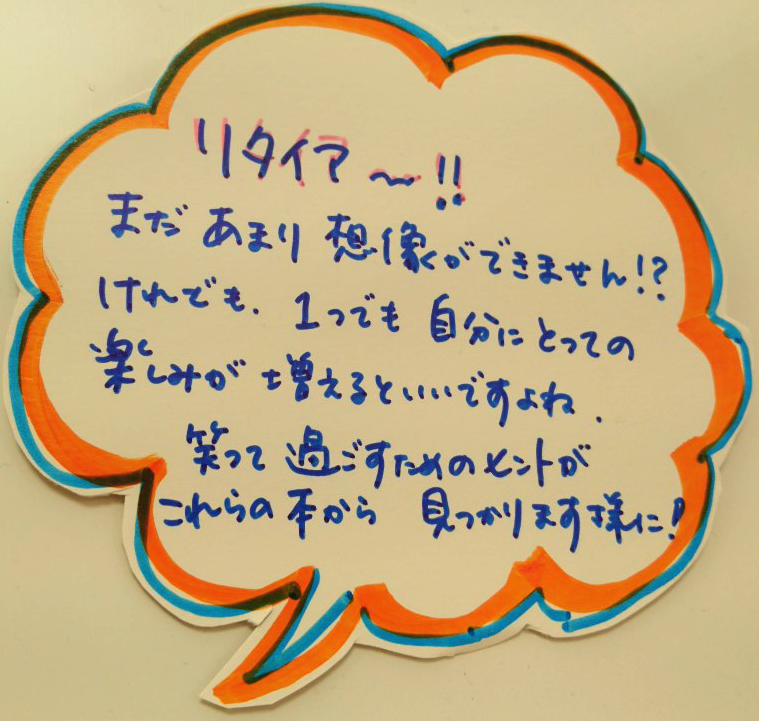 リタイア〜!!
まだ あまり 想像ができません!?
けれでも、1つでも 自分にとっての
楽しみが 増えるといいですよね.
笑って 過ごすためのヒントが
これらの本から 見つかります様に!